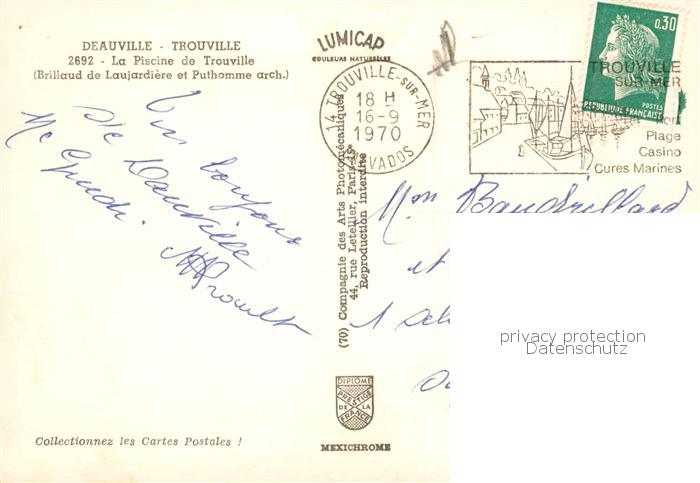 DEAUVILLE - TROUVILLE
2692 - La Piscine de Trouville
(Brillaud de Laujardière et Puthomme arch.)
LUMICAP
COULEURS NATURELLES
14 TROUVILLE-SUR-MER
18 H
16-9
1970
CALVADOS
TROUVILLE
SUR-MER
Port
Plage
Casino
Cures Marines
0,30
POSTES
REPUBLIQUE FRANÇAISE
bonjour
De Deauville
Mon Baudrillard
et
1
privacy protection
Datenschutz
(70) Compagnie des Arts Photomécaniques
44, rue Letellier, Paris-15e
Reproduction interdite
DIPLOME
PRESTIGE
DE LA
FRANCE
MEXICHROME
Collectionnez les Cartes Postales !